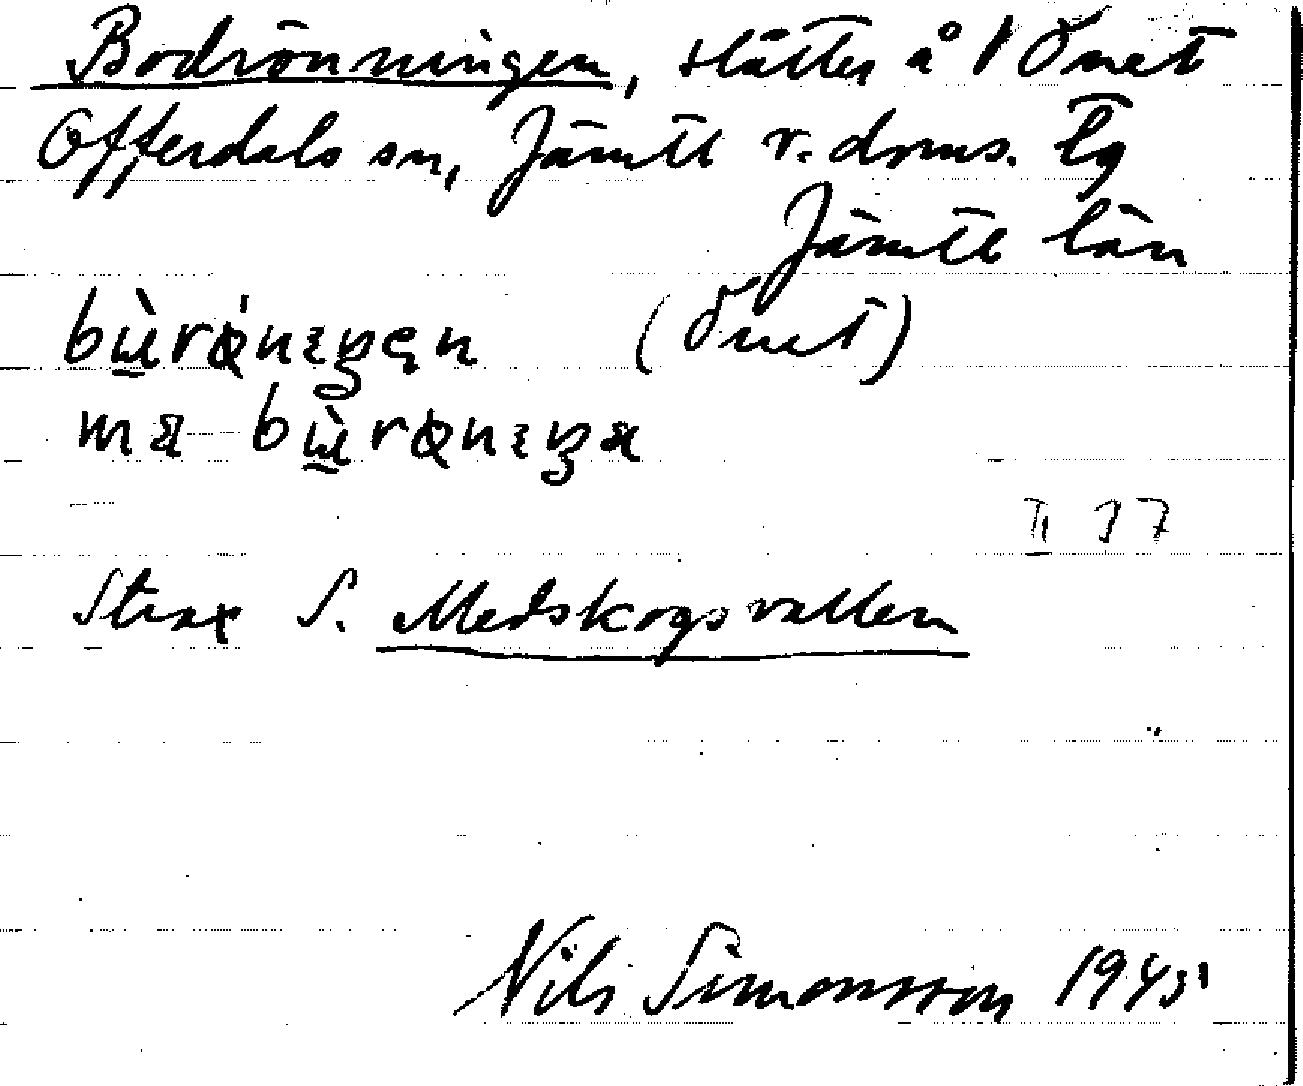 Bodrönningen, slåtter å 1 Önet
Offerdals sn, Jämtl v. doms. lg
Jämtl län
(Önet)
II 37
Strax S. Medskogsvallen
Nils Simonsson 1945